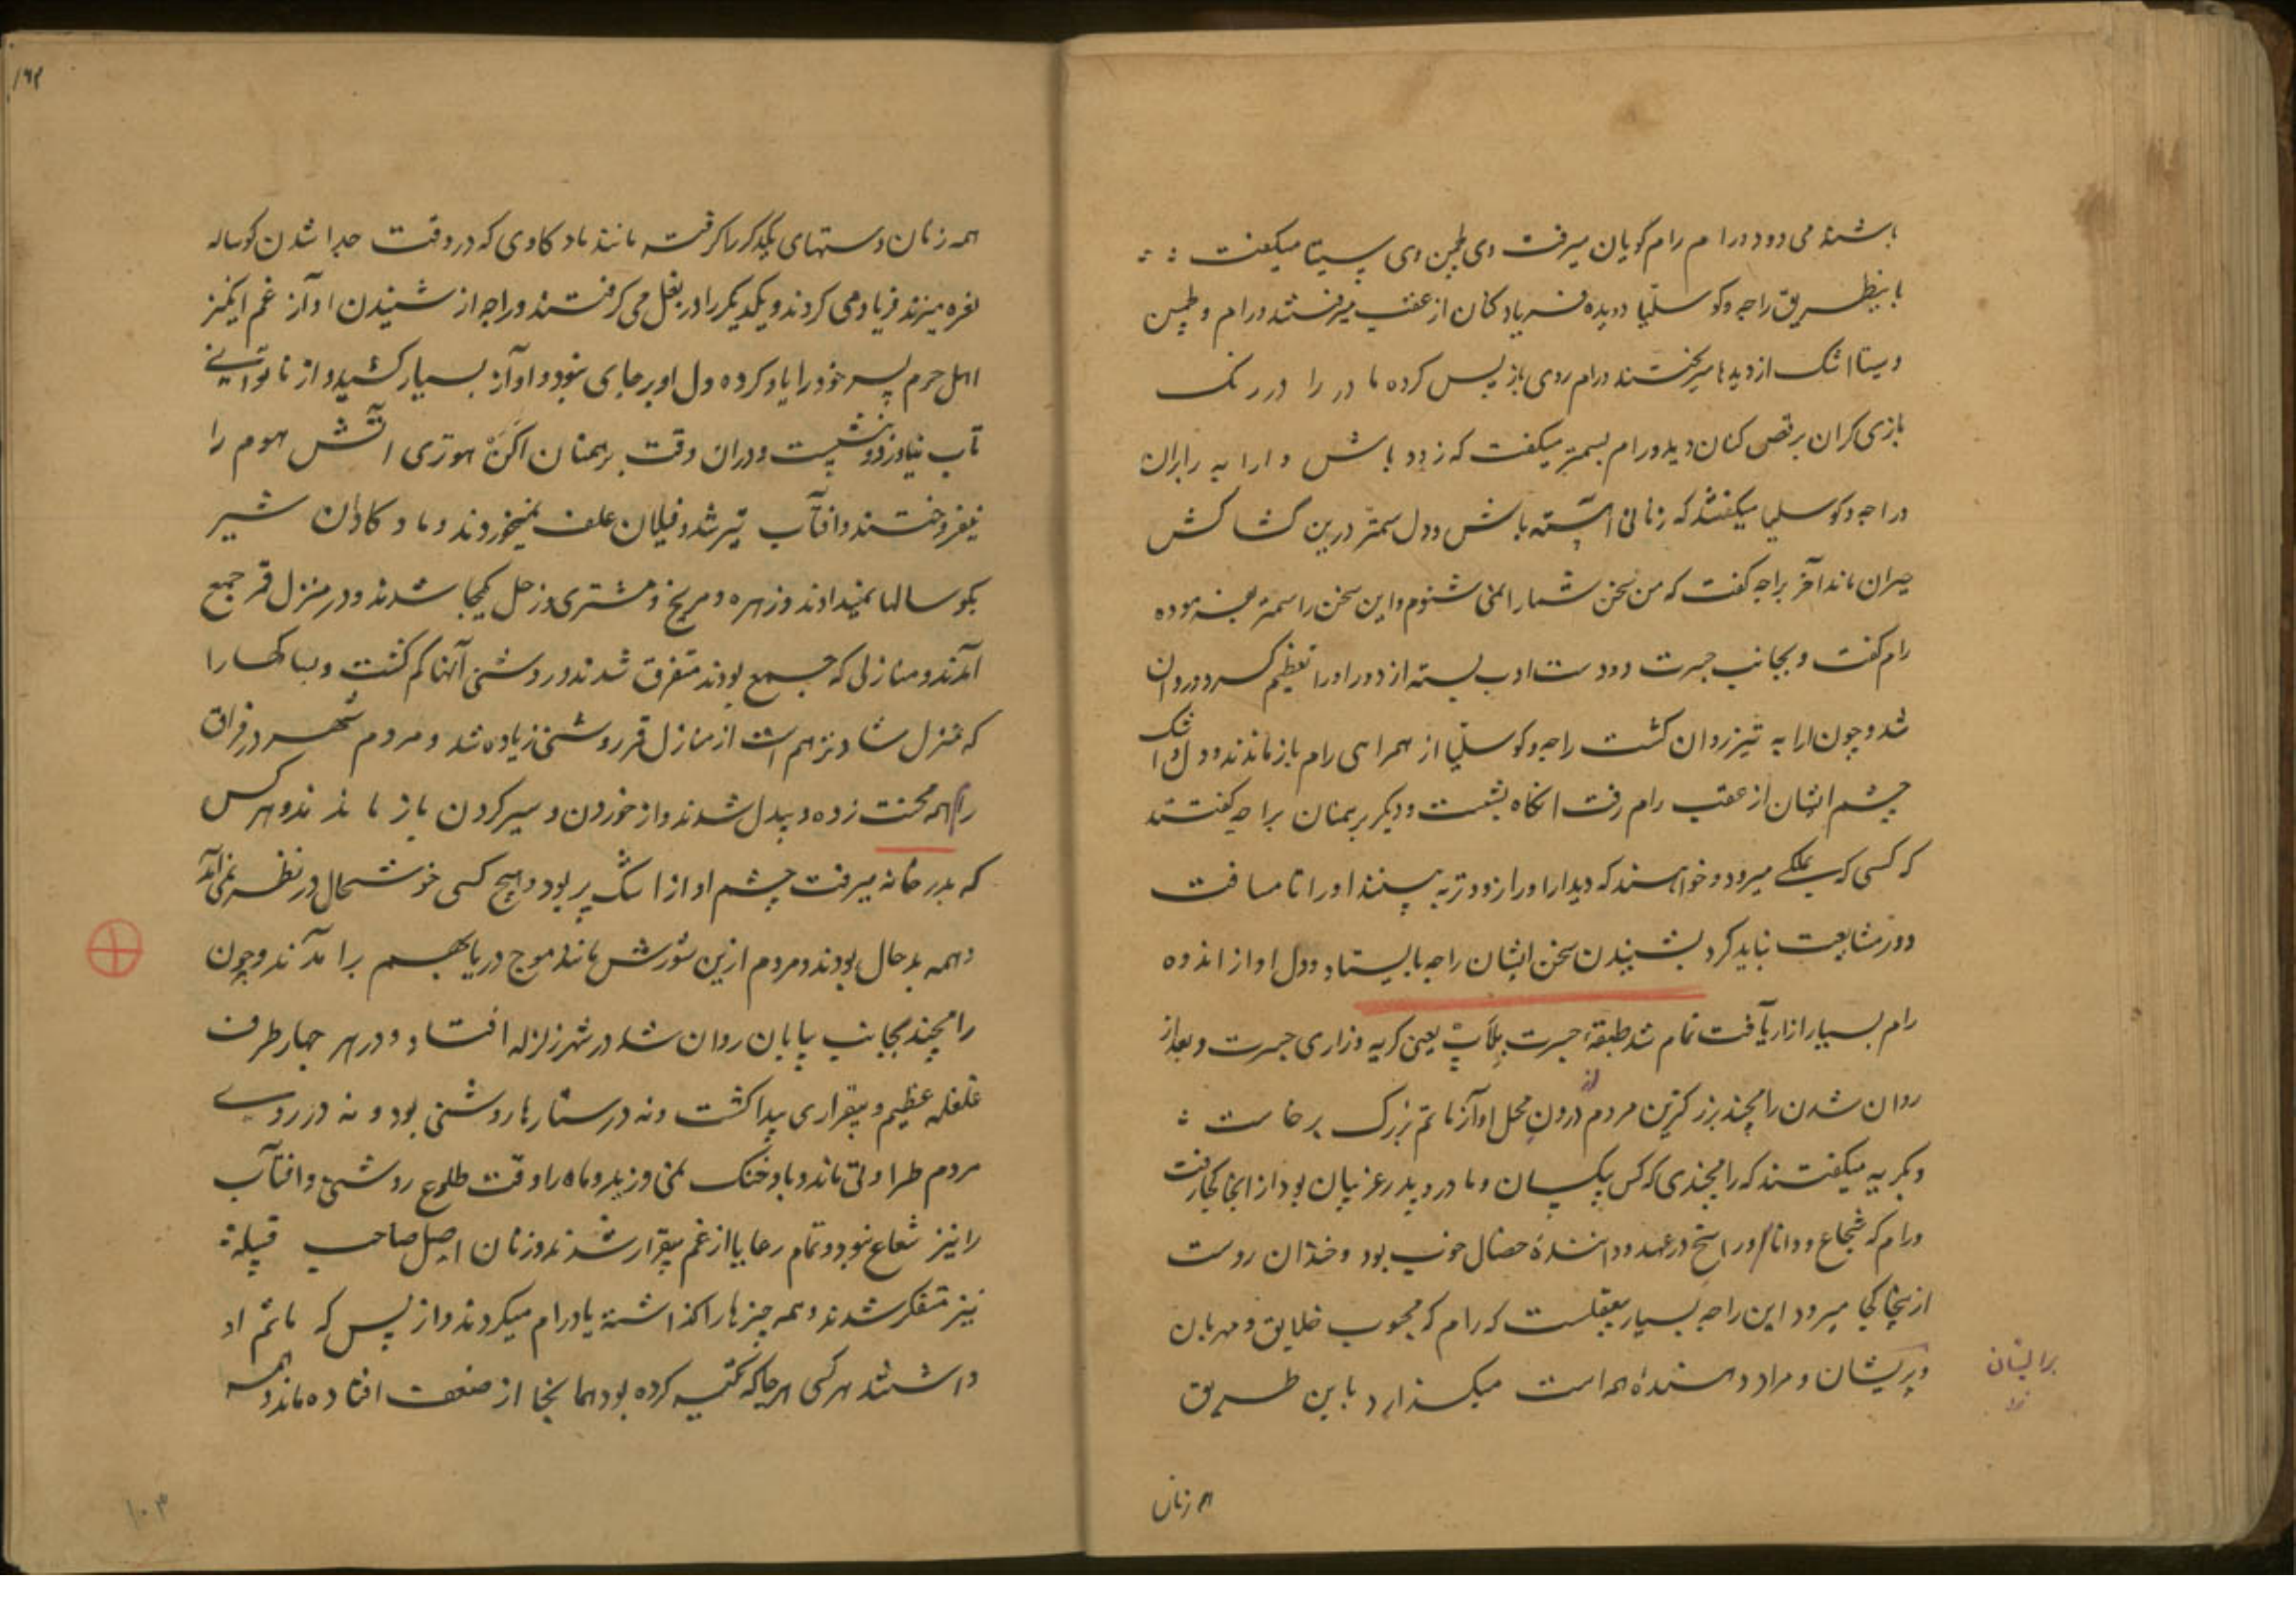 باشند می دود و رام رام گویان میرفت وی لچمن وی سیتا میگفت
باینطریق راجه و کوسلیا دویده فریاد کنان از عقب میرفتند و رام و لچمن
و سیتا اشک از دیدها میریختند و رام روی باز پس کرده مادر را در رنگ
بازی کران برقص کنان دید و رام بسمتر میگفت که زود باش و ارابه را بران
و راجه و کوسلیا میگفتند که زمانی آهسته باش و دل سمتر درین کشاکش
حیران ماند آخر براجه گفت که من سخن شما را نمی شنوم و این سخن را سمتر بفرموده
رام گفت و بجانب جسرت دو دست ادب بسته از دور او را تعظیم کرد و روان
شد و چون ارابه تیز روان گشت راجه و کوسلیا از همراهی رام باز ماندند و دل و اشک
چشم ایشان از عقب رام رفت آنگاه بشست و دیگر برهمنان براجه گفتند
که کسی که بملکی میرود و خواهند که دیدار او را زودتر به بینند او را تا مسافت
دور مشایعت نباید کرد بشنیدن سخن ایشان راجه بایستاد و دل او از اندوه
رام بسیار آزار یافت تمام شد طبقهٔ جسرت بلاپ یعنی گریه و زاری جسرت و بعد از
روان شدن رامچند بزرگترین مردم از درون محل آواز ماتم بزرگ برخاست
و بگریه میگفتند که رامچندی که کس بیکسان و مادر و پدر غریبان بود از اینجا کجا رفت
و رام که شجاع و دانا و راسخ در عهد و دانندهٔ خصال خوب بود و خندان روست
از اینجا کجا میرود این راجه بسیار بیعقلست که رام که محبوب خلایق و مهربان
و پریشان و مراد دهندهٔ همه است میگذارد باین طریق
بر ایشان
همه زنان
۱۶۳
همه زنان دستهای یکدیگر را گرفته مانند ماده گاوی که در وقت جدا شدن گوساله
نعره میزند فریاد می کردند و یکدیگر را در بغل می گرفتند و راجه از شنیدن آواز غم انگیز
اهل حرم پسر خود را یاد کرده دل او بر جای نبود و آواز بسیار کشید و از ناتوانی
تاب نیاورد و نشست و در آن وقت برهمنان اگن هوتری آتش هوم را
نیفروختند و آفتاب تیره شد و فیلان علف نمیخوردند و ماده گاوان شیر
بگوسالها نمیدادند و زهره و مریخ و مشتری و زحل یکجا شدند و در منزل قمر جمع
آمدند و منازلی که جمع بودند متفرق شدند و روشنی آنها کم گشت و بساکها را
که منزل شانزدهم است از منازل قمر روشنی زیاده شد و مردم شهر در فراق
رام همه محنت زده و بیدل شدند و از خوردن و سیر کردن باز ماندند و هر کس
که بدر خانه میرفت چشم او از اشک پر بود و هیچ کسی خوشحال در نظر نمی آمد
و همه بدحال بودند و مردم ازین شورش مانند موج دریا بهم برآمدند و چون
رامچند بجانب بیابان روان شد در شهر زلزله افتاد و در هر چهار طرف
غلغله عظیم و بیقراری پیدا گشت و نه در ستارها روشنی بود و نه در روی
مردم طراوتی ماند و باد خنک نمی وزید و ماه را وقت طلوع روشنی و آفتاب
را نیز شعاع نبود و تمام رعایا از غم بیقرار شدند و زنان اصیل صاحب قبیله
نیز متفکر شدند و همه چیزها را گذاشته یاد رام میکردند و از بس که ماتم او
داشتند هر کسی هر جا که تکیه کرده بود همانجا از ضعف افتاده ماند و همه
۱۰۳